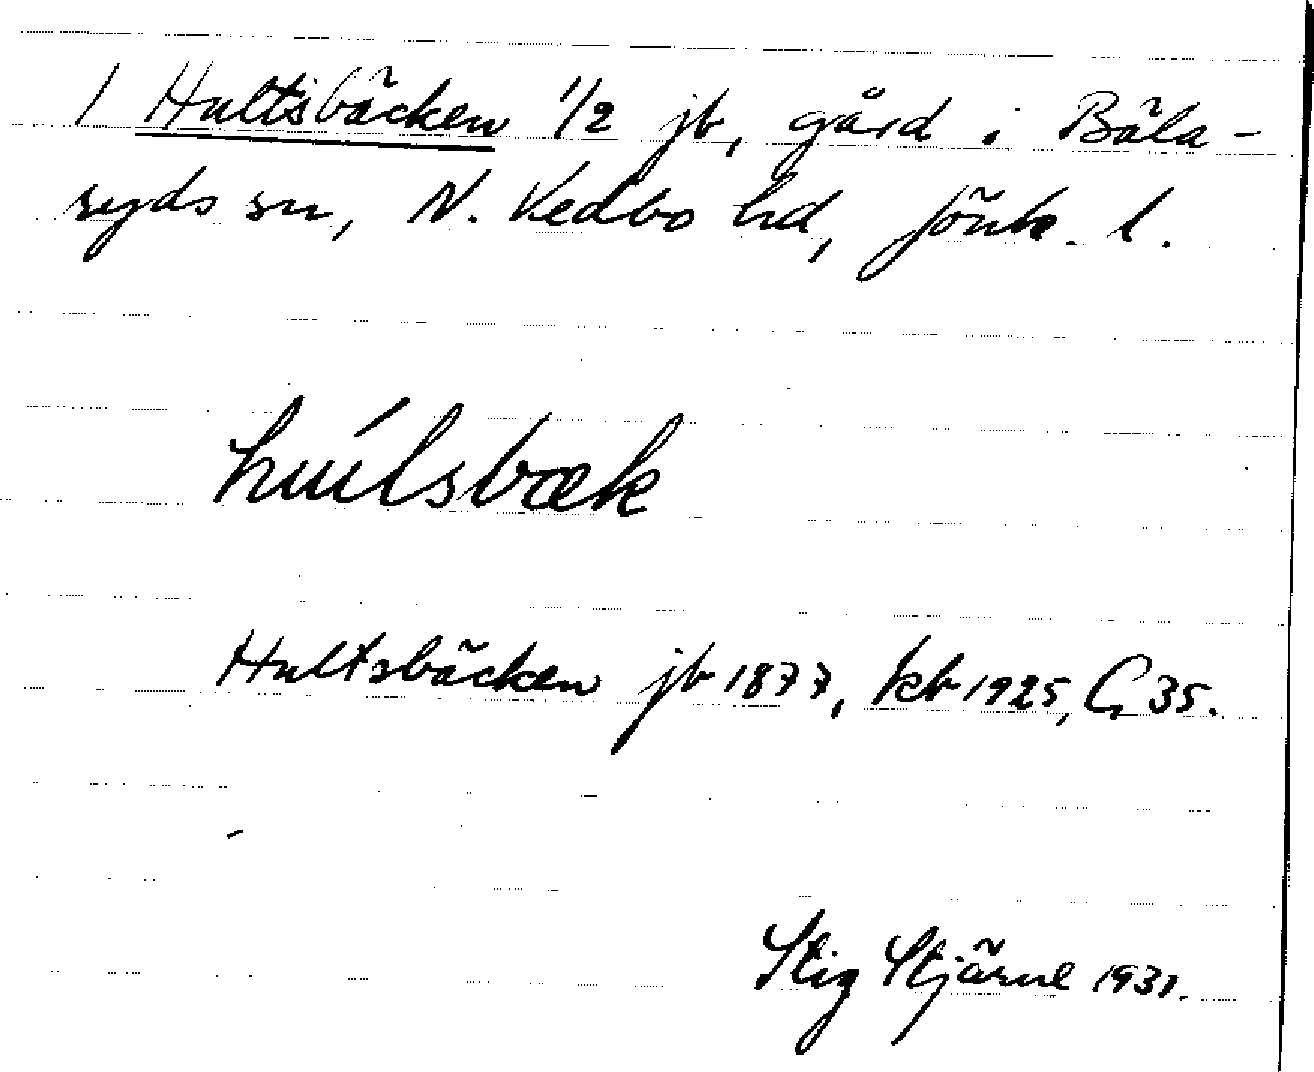 1 Hultsbäcken 1/2 jb, gård i Bäla-
ryds sn, N. Vedbo hd, Jönk. l.
hulsbæk
Hultsbäcken jb 1877, kb 1925, G 35.
Stig Stjärne 1931.